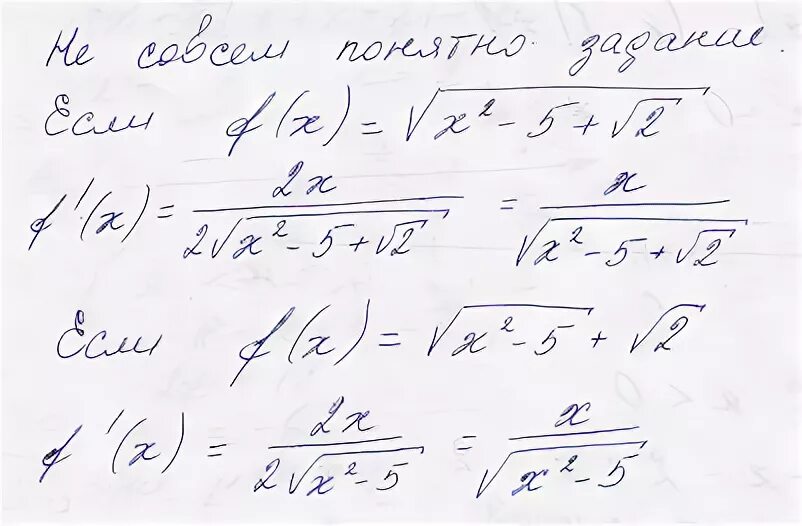 Не совсем понятно задание.
Если f(x) = √(x² - 5 + √2)
f'(x) = 2x / (2√(x² - 5 + √2)) = x / √(x² - 5 + √2)
Если f(x) = √(x² - 5) + √2
f'(x) = 2x / (2√(x² - 5)) = x / √(x² - 5)